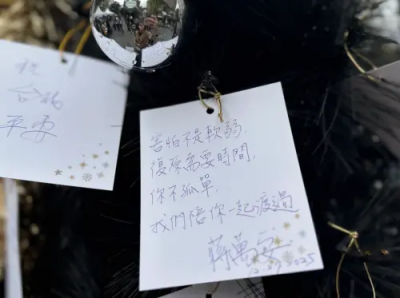 祝
台北
平安
害怕不是軟弱,
復原需要時間,
你不孤單.
我們陪你一起渡過
蔣萬安
2025